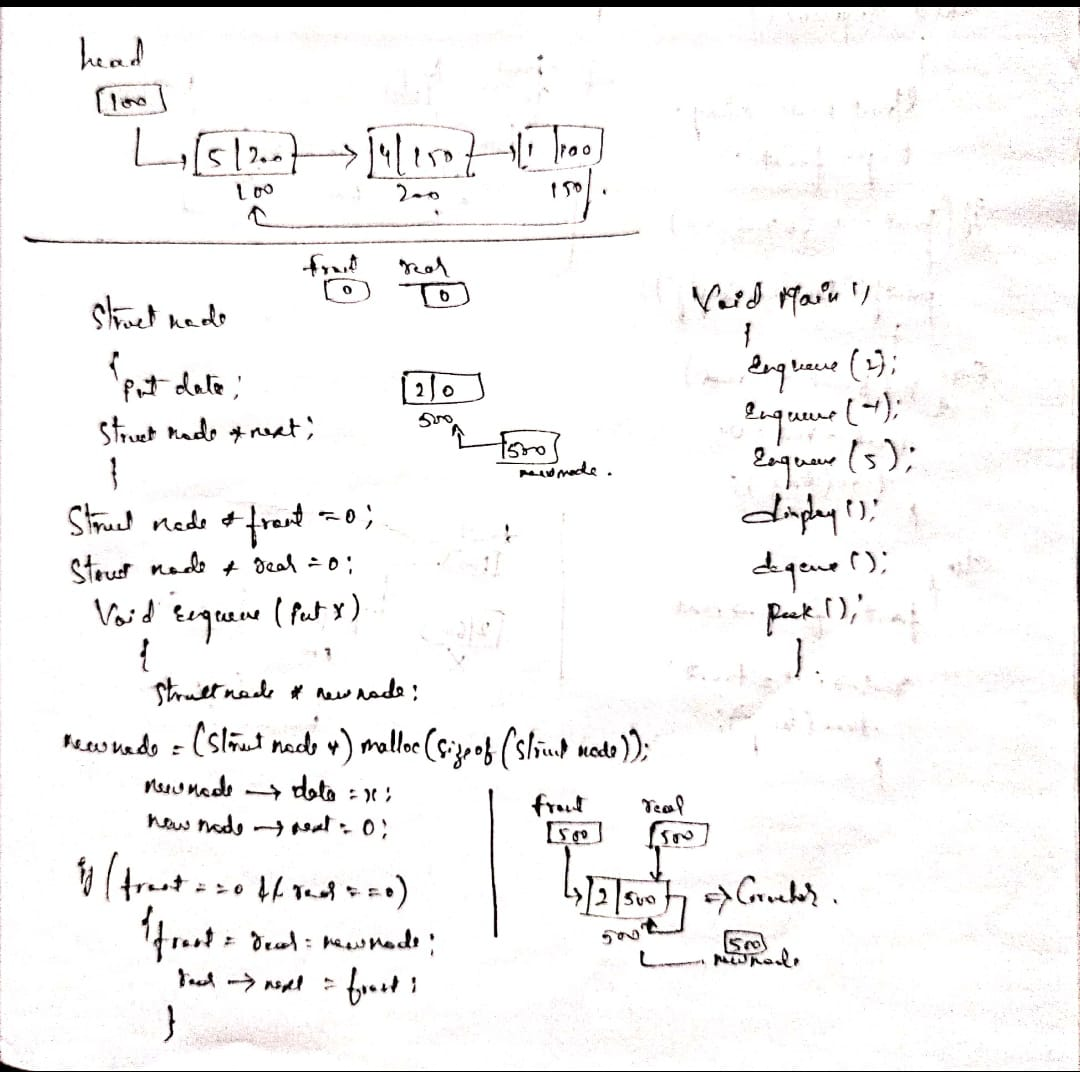 head
100
5 200 4 150 1 100
100 200 150
front rear
0 0
Struct node
{
int data;
Struct node *next;
}
2 0
500
500
newnode.
Struct node *front =0;
Struct node * rear =0;
Void Enqueue (int x)
{
Struct node * newnode;
newnode = (Struct node *) malloc(sizeof (Struct node));
newnode → data = x;
new node → next = 0;
if (front ==0 && rear ==0)
{
front = rear = newnode;
rear → next = front;
}
Void Main()
{
Enqueue (2);
Enqueue
Enqueue (5);
display ();
deqeue ();
Peek ();
}.
front rear
500 500
2 500
500
500
newnode